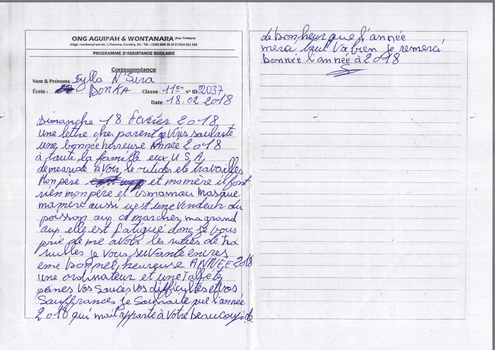 ONG AGUIPAH & WONTANARA
PROGRAMME D'ASSISTANCE SCOLAIRE
Correspondance
Nom & Prénoms : Sylla N'Sira
École : DONKA Classe : 11ème N° ID 2037
Date : 18.02.2018
Dimanche 18 Février 2018
une lettre cher parent je vous saularte
une bonnée herreuse Année 2018
à taute la famille eux U.S.A
demende à voir le rutides et travailles
Mon père et ma mère il font
rien mon père et
ma mère aussi est une vendeur du
poisson au marchez ma grand
elle est fatigué donc je vous
prie de me avoir les
je vous
heureuse ANNÉE 2018
une ordinateur et une Tablete
vos difficultes et vos
Sauffrances je Sauhaite que l'année
2018 qui apparte à votre beaucoup de
de bonheur que l'année
merci tout va bien je remerci
bonnée l'année à 2018